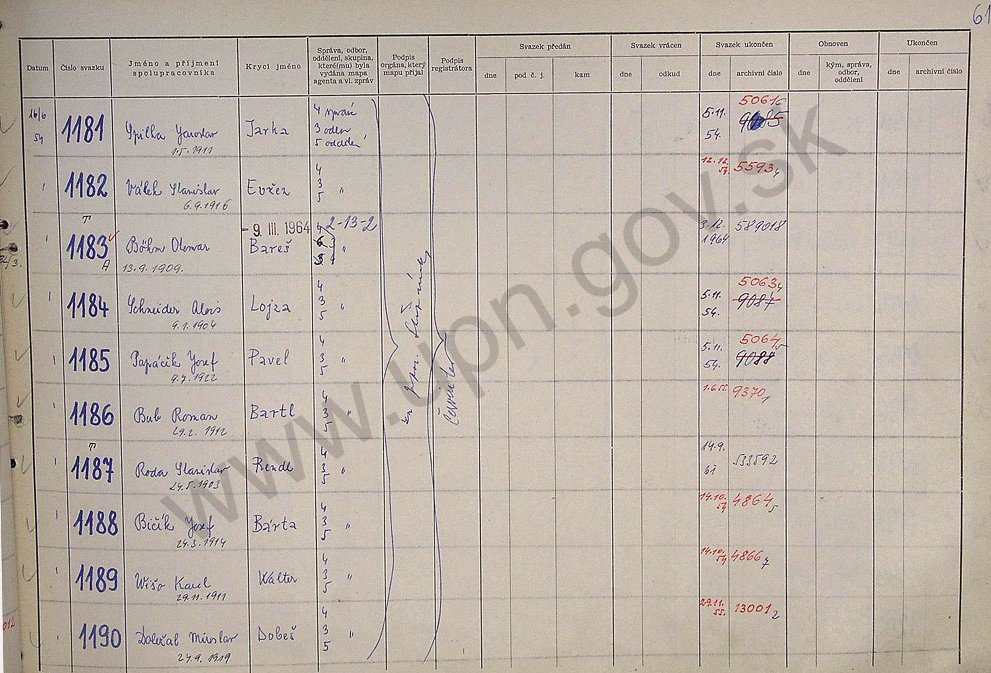 61
Datum
Číslo svazku
Jméno a příjmení
spolupracovníka
Krycí jméno
Správa, odbor,
oddělení, skupina,
které(mu) byla
vydána mapa
agenta a vl. zpráv
Podpis
orgána, který
mapu přijal
Podpis
registrátora
Svazek předán
dne
pod č. j.
kam
Svazek vrácen
dne
odkud
Svazek ukončen
dne
archivní číslo
Obnoven
dne
kým, správa,
odbor,
oddělení
Ukončen
dne
archivní číslo
16/6
54
1181
Spilka Jaroslav
1.5.1911
Jarka
4 správa
3 odbor
5 odděl.
5.11.
54.
5061
1182
Válek Stanislav
6.9.1916
Evžen
4
3 "
5
12.12.
5593
1183
A
Böhm Otomar
13.9.1909.
- 9. III. 1964
Bareš
2-13-2
3.12.
1964
589018
1184
Schneider Alois
9.1.1904
Lojza
4
3 "
5
5.11.
54.
5063
9087
1185
Papáčik Josef
Pavel
4
3 "
5
5.11.
54.
5064
9088
1186
Bub Roman
29.2.1912
Bartl
4
3 "
5
1.6.55.
9370
1187
Roda Stanislav
24.5.1903
Rendl
4
3 "
5
14.9.
61
533592
1188
Bičík Josef
24.3.1914
Bárta
4
3 "
5
14.10.
54
4864
1189
Wišo Karel
29.11.1911
Walter
4
3 "
5
14.10.
54
4866
1190
Doležal Miroslav
27.9.1919
Dobeš
4
3 "
5
29.11.
55.
13001
www.upn.gov.sk